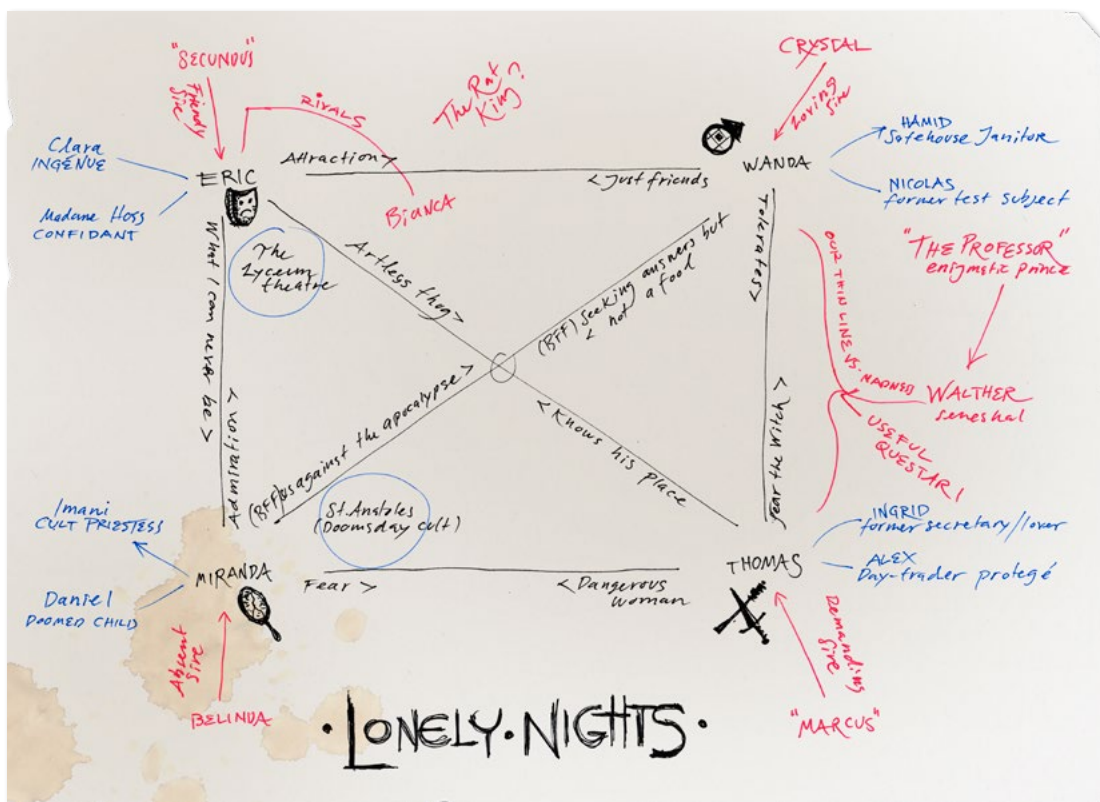 "SECUNDUS"
Friendly
Sire
RIVALS
The Rat
King?
CRYSTAL
Loving Sire
Clara
INGENUE
Madame Hoss
CONFIDANT
ERIC
Attraction>
< Just friends
WANDA
HAMID
Safehouse Janitor
NICOLAS
former test subject
Bianca
The
Lyceum
theatre
What I can never be >
< Admiration
Artless thug>
(BFF) Seeking answers but
< not a food
Tolerates>
< Fear the Witch
OUR THIN LINE VS. MADNESS
"THE PROFESSOR"
enigmatic prince
WALTHER
seneshal
USEFUL
QUESTARI
(BFF) us against the apocalypse >
< Knows his place
St. Anatoles
(Doomsday cult)
Imani
CULT PRIESTESS
Daniel
DOOMED CHILD
MIRANDA
Fear >
< Dangerous
woman
THOMAS
INGRID
former secretary/lover
ALEX
Day-trader protegé
Absent
Sire
BELINDA
Demanding
Sire
"MARCUS"
· LONELY · NIGHTS ·